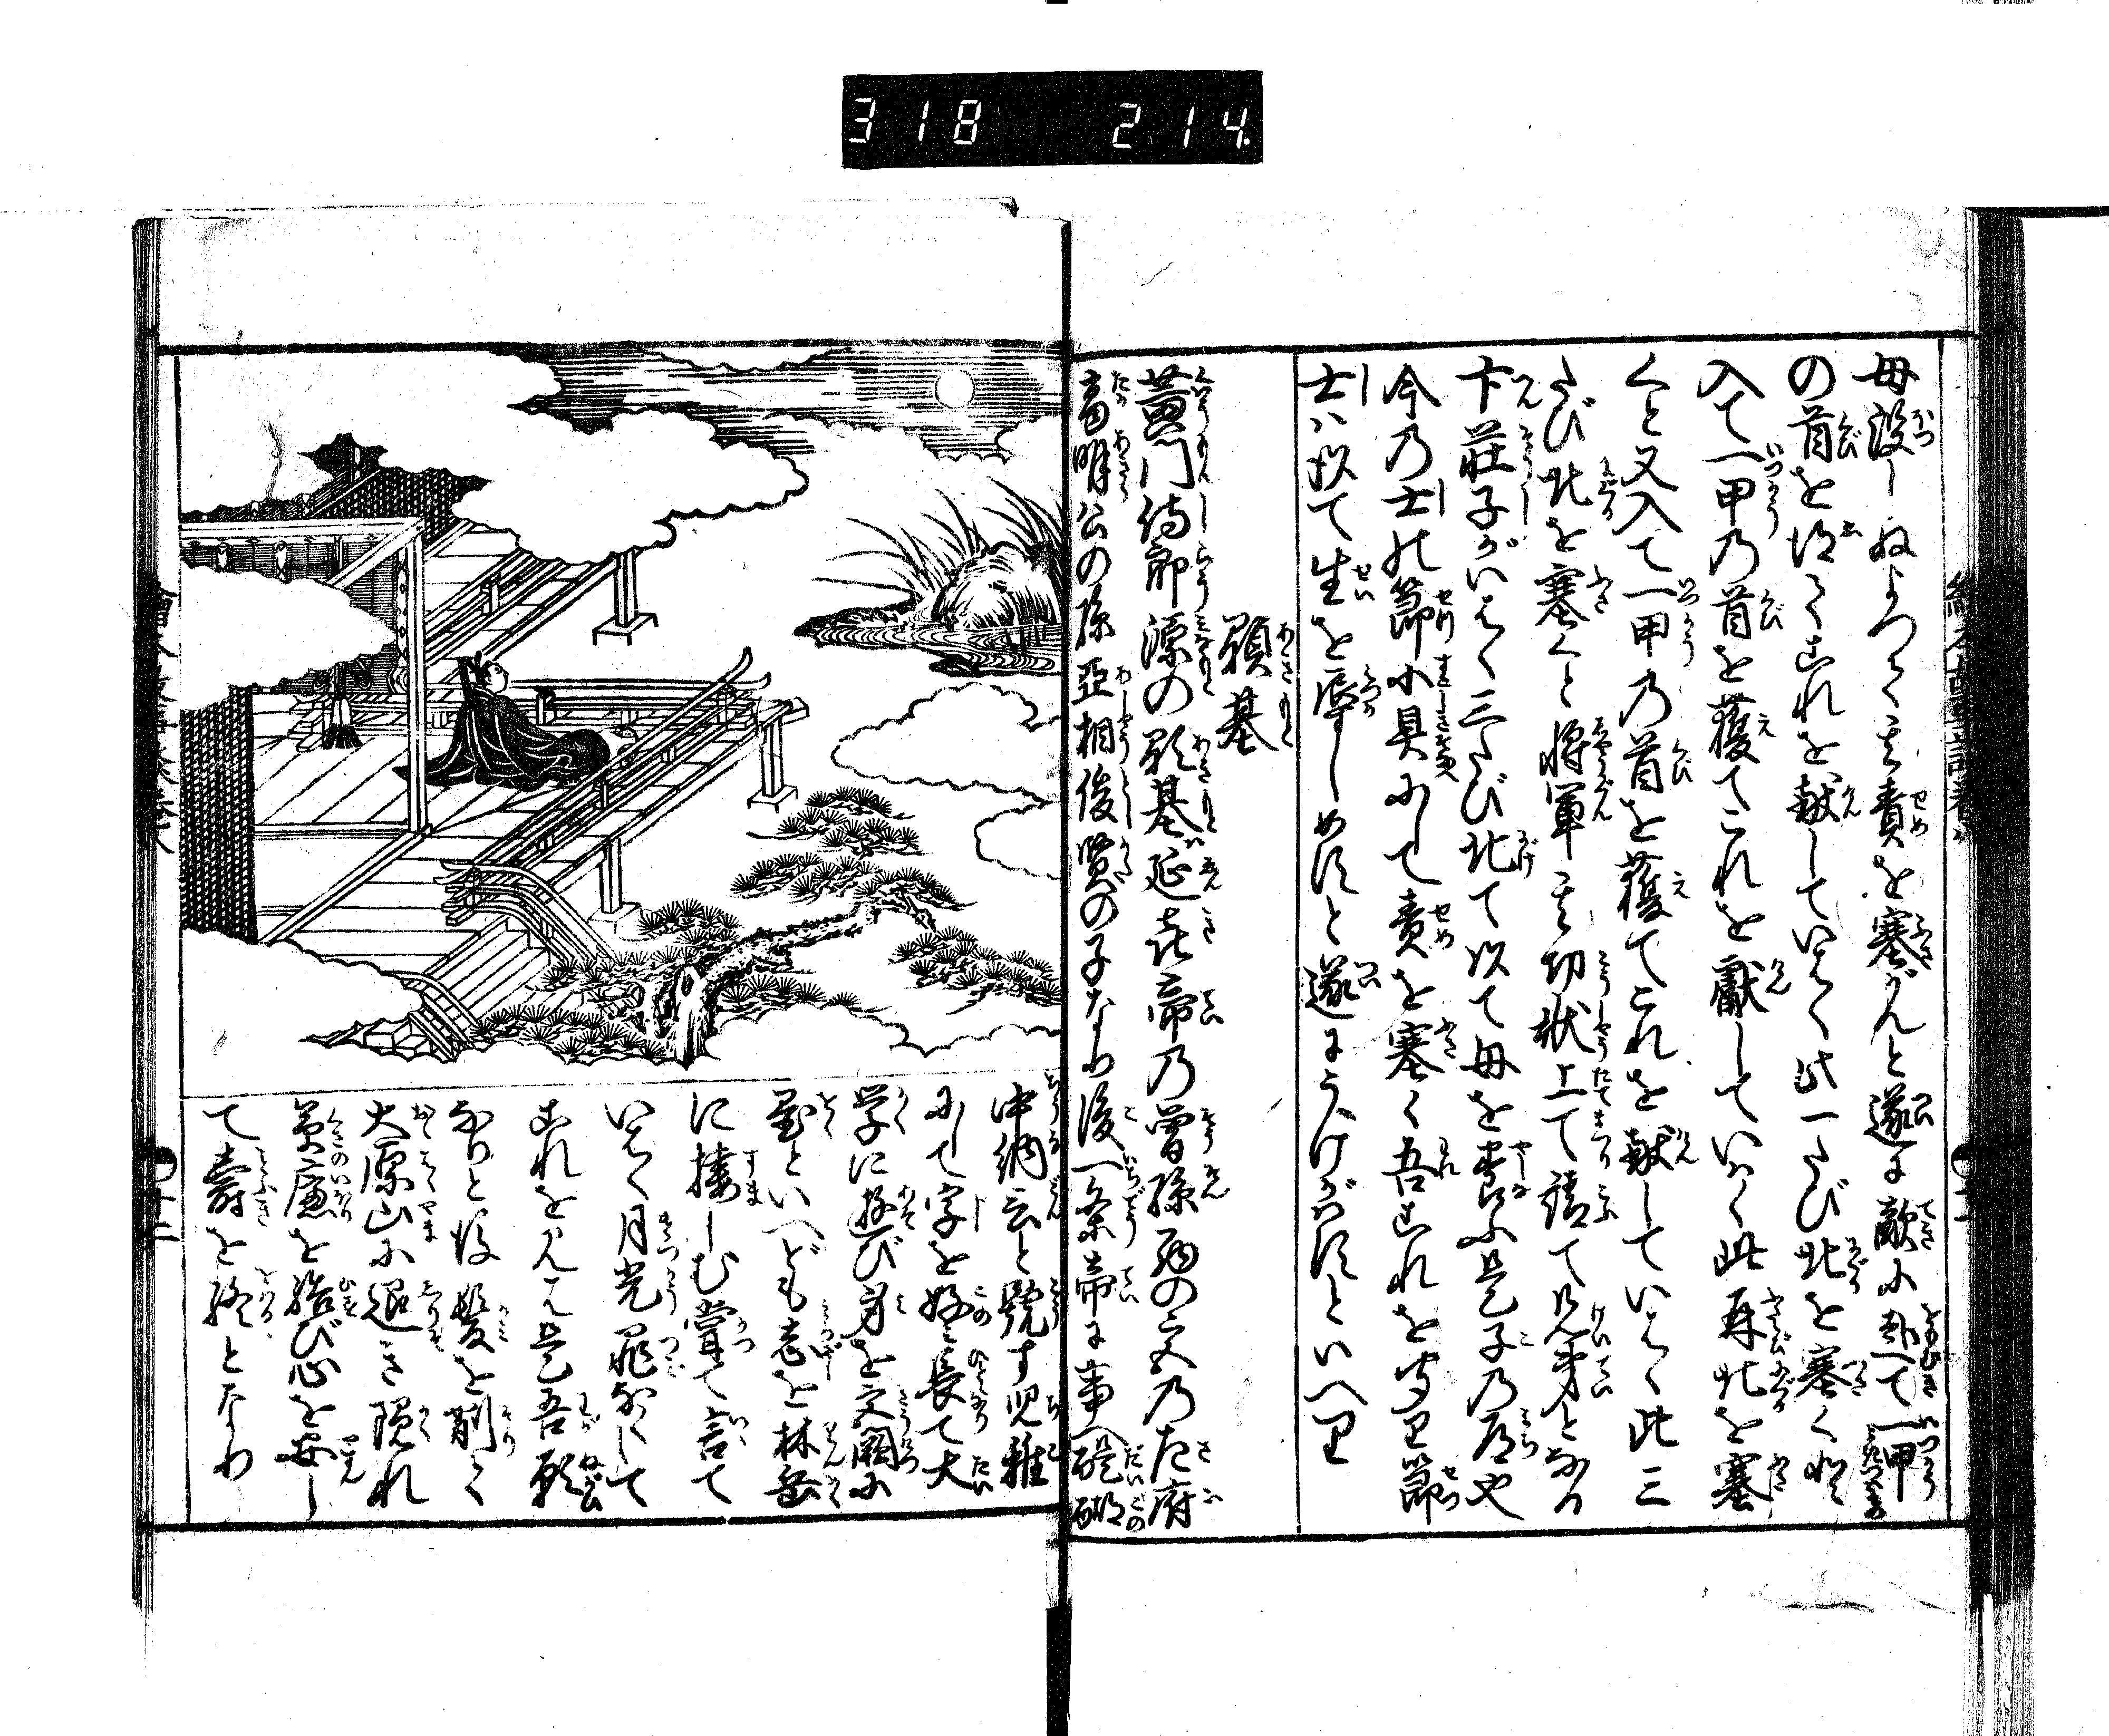 318 214.
母没しぬよつて其責を塞がんと遂に敵に赴て一甲
の首を得てこれを献していはく此一たび北を塞く
入て一甲乃首を獲てこれを獻していはく此再北を塞
くと又入て一甲乃首を獲てこれを献していはく此三
たび北を塞くと将軍其功状上て請て兄弟となる
卞荘子がいはく三たび北て以て母を養ふ是子の道や
今乃士の節小具にして責を塞く吾これを聞り節
士ハ以て生を辱しめずと遂に
顕基
黄門侍郎源の顕基ハ延喜帝乃曽孫の左府
高明公の孫亞相俊賢の子なり後一条帝に事へ醍醐
中納言と號す児稚
にして学を好ミ長て大
学に遊び身を文闕に
といへども志を林岳
に棲しむ嘗て言て
いはく月光罪なくして
これを見んは是吾願
なりと後髪を削て
大原山に退き隠れ
を結び心を安し
て壽を終となり